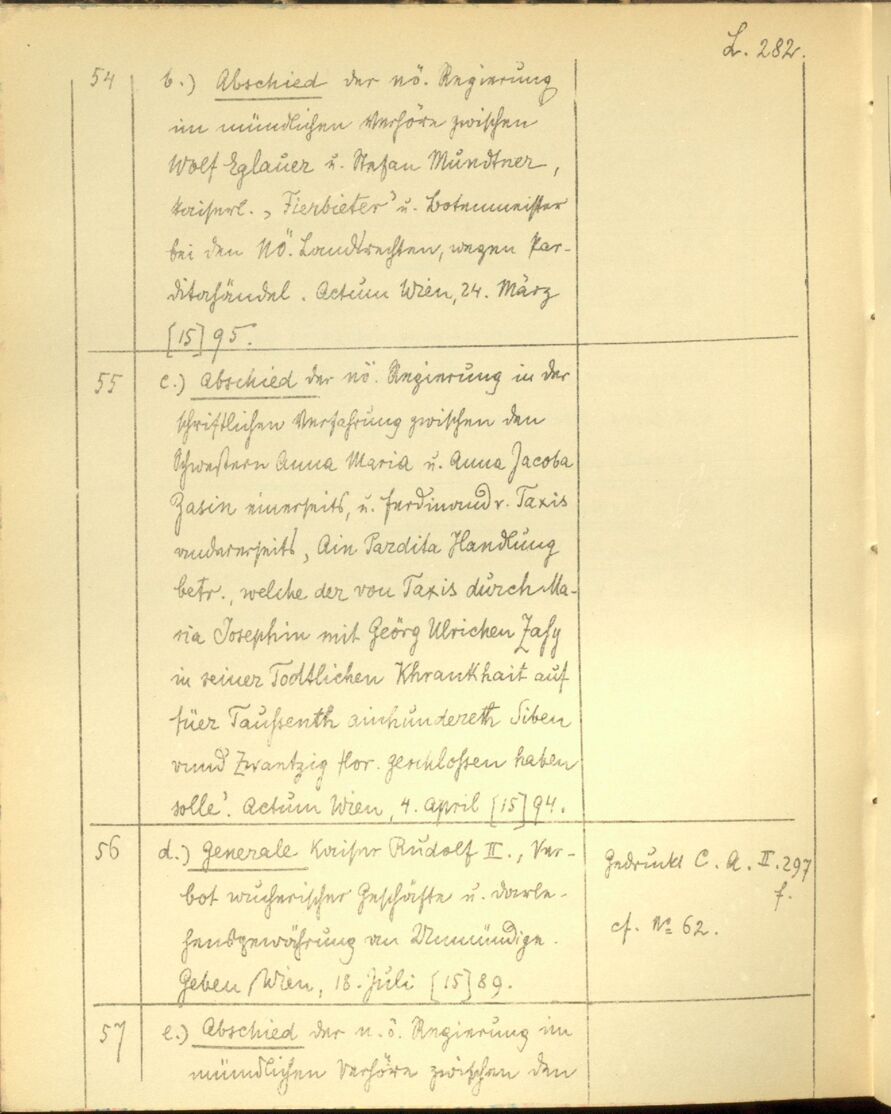 L. 282.
54 b.) Abschied der nö. Regierung
im mündlichen Verhöre zwischen
Wolf Eglauer u. Stefan Mundtner,
kaiserl. „Fierbieter“ u. Botenmeister
bei den NÖ. Landrechten, wegen Par-
ditahändel. Actum Wien, 24. März
[15]95.
55 c.) Abschied der nö. Regierung in der
schriftlichen Verfahrung zwischen den
Schwestern Anna Maria u. Anna Jacoba
Zasin einerseits, u. Ferdinand v. Taxis
andererseits, „Ain Pardita Handlung
betr., welche der von Taxis durch Ma-
ria Josephin mit Geörg Ulrichen Zasy
in seiner Todtlichen Khrankhait auf
füer Taussenth ainhundereth Siben
vnnd Zwantzig flor. geschlossen haben
solle“. Actum Wien, 4. April [15]94.
56 d.) Generale Kaiser Rudolf II., Ver-
bot wucherischer Geschäfte u. Darle-
hensgewährung an Unmündige.
Geben Wien, 18. Juli [15]89.
Gedruckt C. A. II. 297
f.
cf. № 62.
57 e.) Abschied der n.ö. Regierung im
mündlichen Verhöre zwischen den